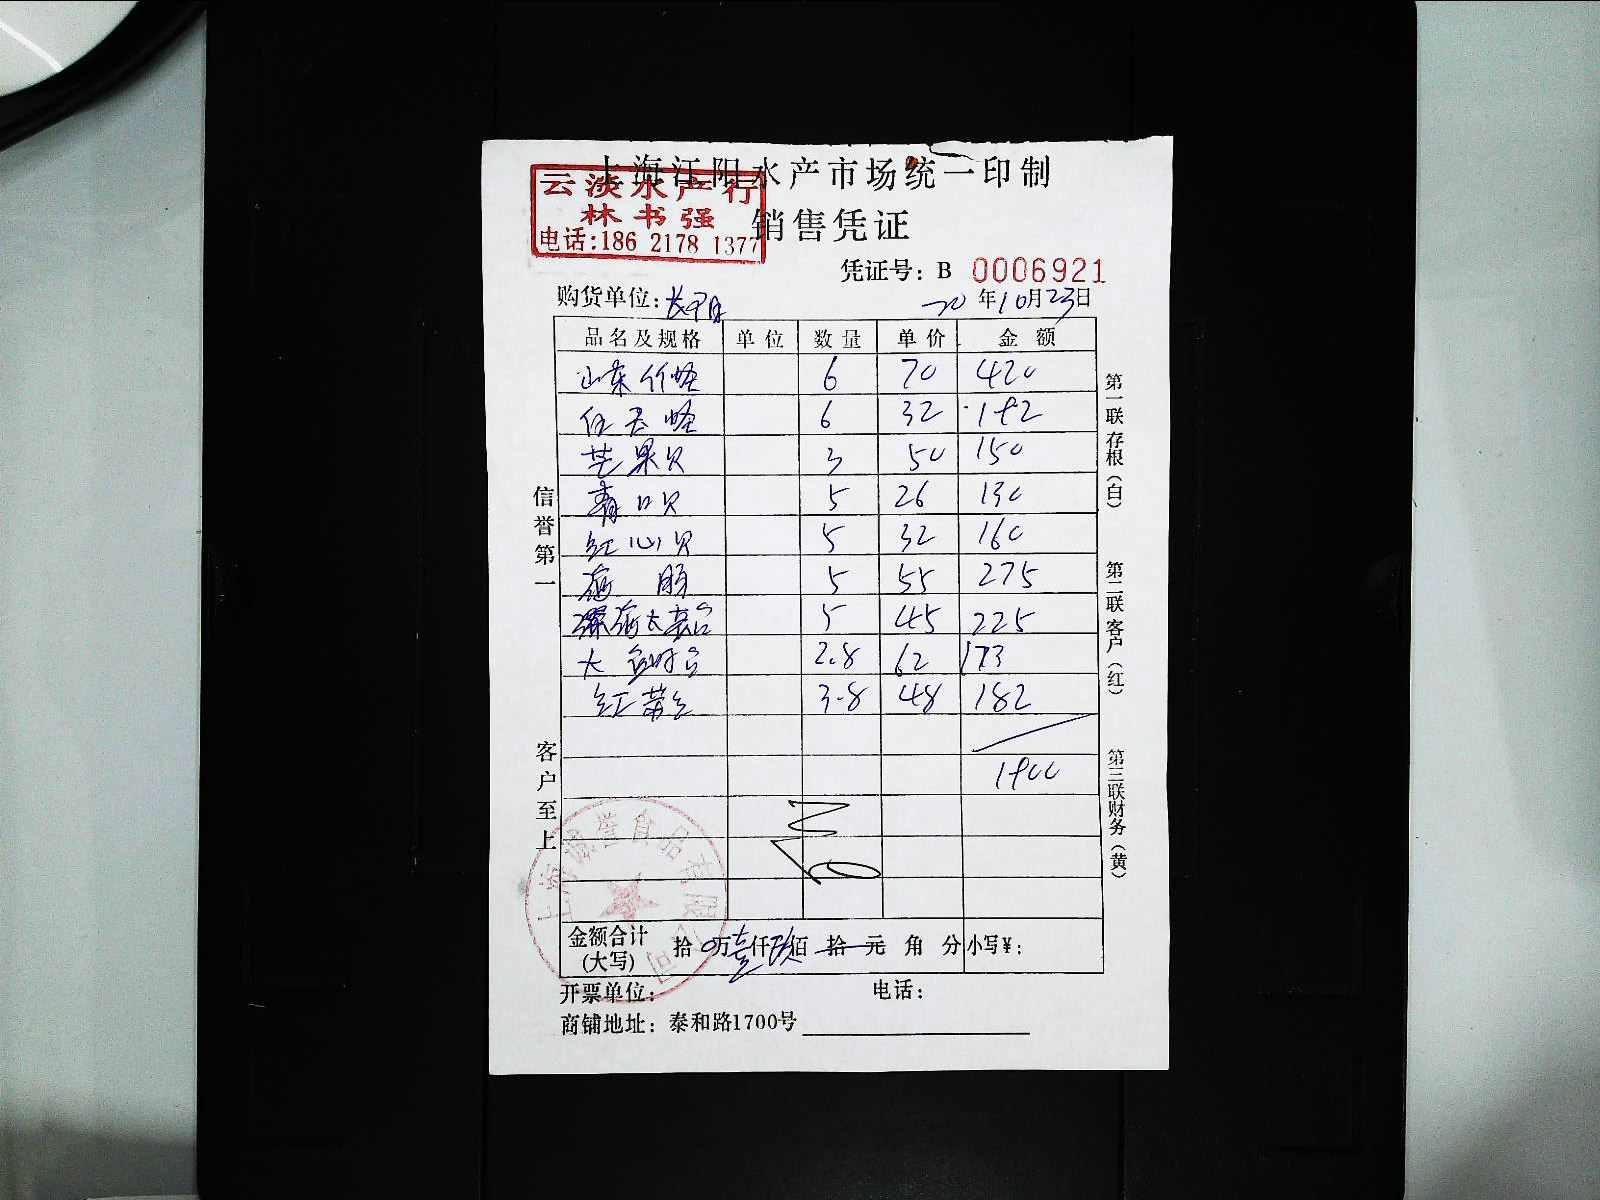 上海江阳水产市场统一印制
云淡水产行
林书强
电话:186 2178 1377
销售凭证
凭证号: B 0006921
购货单位:
20年10月23日
品名及规格 单位 数量 单价 金额
山东 6 70 420
6 32 192
苹果贝 3 50 150
青口贝 5 26 130
红心贝 5 32 160
海 5 55 275
深海大 5 45 225
大 2.8 62 173
红 3.8 48 182
1900
金额合计(大写) 拾0万壹仟玖佰拾元角分 小写¥:
开票单位: 电话:
商铺地址: 泰和路1700号
信誉第一
客户至上
第一联存根(白)
第二联客户(红)
第三联财务(黄)
誉食品有限公司